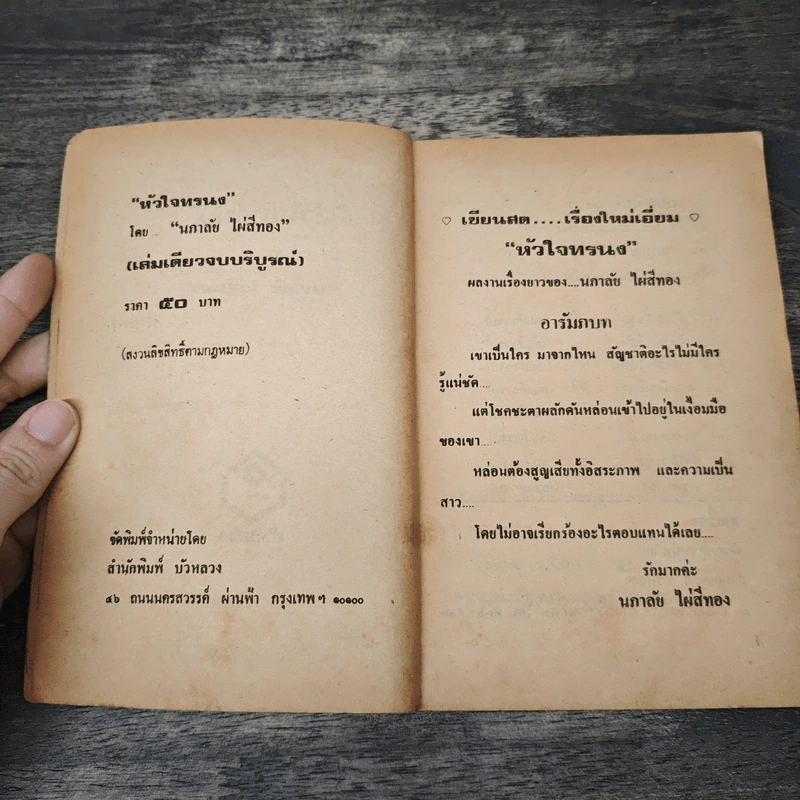 "หัวใจทรนง"
โดย "นภาลัย ไผ่สีทอง"
(เล่มเดียวจบบริบูรณ์)
ราคา ๕๐ บาท
(สงวนลิขสิทธิ์ตามกฎหมาย)
จัดพิมพ์จำหน่ายโดย
สำนักพิมพ์ บัวหลวง
๔๖ ถนนนครสวรรค์ ผ่านฟ้า กรุงเทพฯ ๑๐๑๐๐
♡ เขียนสด....เรื่องใหม่เอี่ยม ♡
"หัวใจทรนง"
ผลงานเรื่องยาวของ....นภาลัย ไผ่สีทอง
อารัมภบท
เขาเป็นใคร มาจากไหน สัญชาติอะไรไม่มีใคร
รู้แน่ชัด....
แต่โชคชะตาผลักดันหล่อนเข้าไปอยู่ในเงื้อมมือ
ของเขา....
หล่อนต้องสูญเสียทั้งอิสระภาพ และความเป็น
สาว....
โดยไม่อาจเรียกร้องอะไรตอบแทนได้เลย....
รักมากค่ะ
นภาลัย ไผ่สีทอง